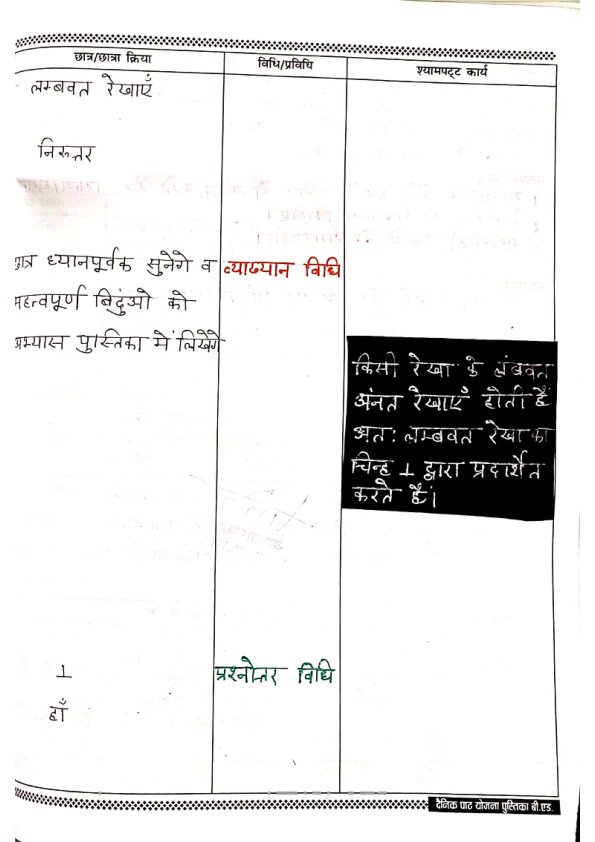 छात्र/छात्रा क्रिया
विधि/प्रविधि
श्यामपट्ट कार्य
लम्बवत रेखाएँ
निरूत्तर
छात्र ध्यानपूर्वक सुनेगे व
महत्वपूर्ण बिदुंओ को
अभ्यास पुस्तिका में लिखेंगे
व्याख्यान विधि
किसी रेखा के लंबवत
अंनत रेखाएँ होती हैं
अतः लम्बवत रेखा का
चिन्ह ⊥ द्वारा प्रदार्शत
करते हैं।
⊥
हाँ
प्रश्नोत्तर विधि
दैनिक पाठ योजना पुस्तिका बी.एड.